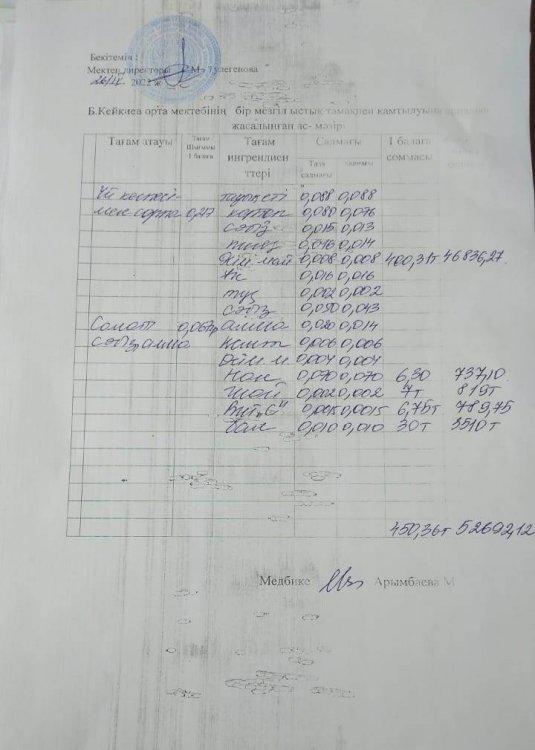 Бекітемін :
Мектеп директоры М. Тулегенова
26/IX 202
Б.Кейкиева орта мектебінің бір мезгіл ыстық тамақпен қамтылуына арналып
жасалынған ас- мәзірі
Тағам атауы Тағам Шығымы 1 балаға Тағам ингрендиенттері Салмағы 1 балаға соммасы
Таза салмағы
Үй кеспесі- тауық еті 0,088 0,088
мен сорпа 0,217 картоп 0,080 0,076
сәбіз 0,015 0,013
пияз 0,016 0,014
өсім май 0,008 0,008 400,31т 46836,27.
ұн 0,016 0,016
тұз 0,002 0,002
сәбіз 0,050 0,043
Салат алма 0,020 0,014
сәбіз, алма 0,006 0,006
өсім м 0,004 0,004
Нан 0,070 0,070 6,30 737,10.
Шай 0,002 0,002 7т 819т
Вит„С" 0,0015 0,0015 6,75т 789,75
бал 0,010 0,010 30т 3510т
450,36т 52692,12
Медбике Арымбаева М